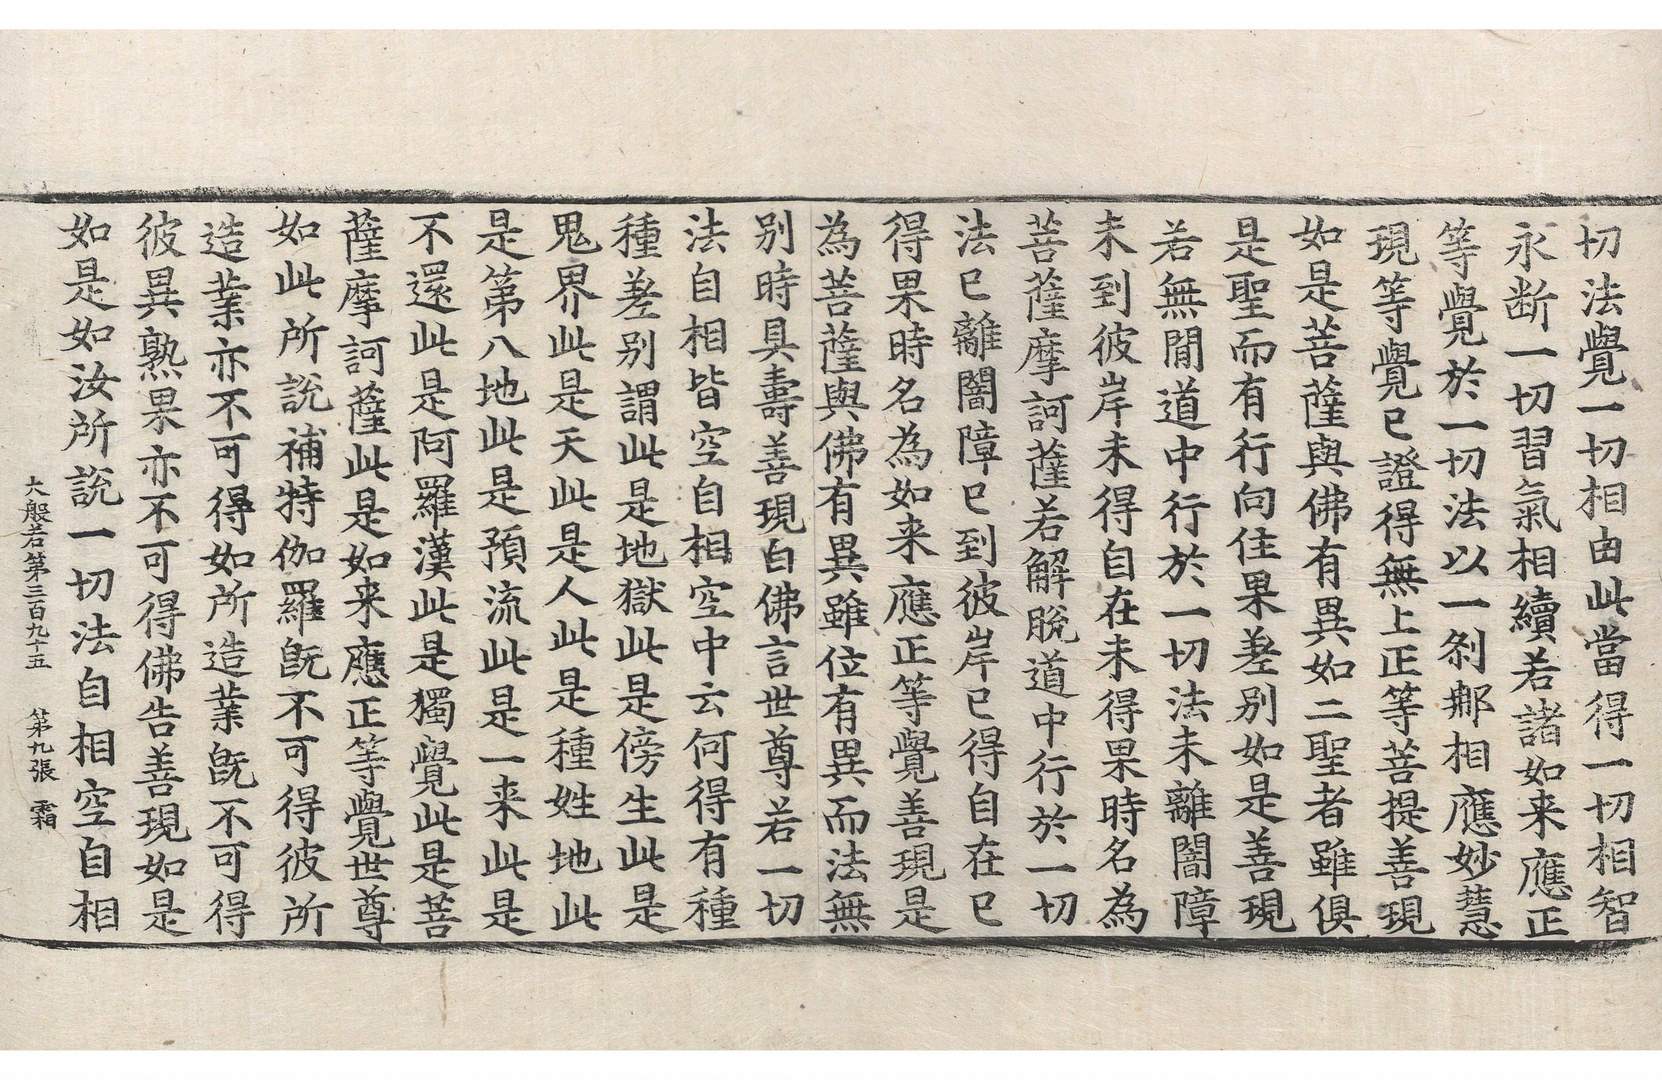 切法覺一切相由此當得一切相智
永断一切習氣相續若諸如来應正
等覺於一切法以一刹郍相應妙慧
現等覺已證得無上正等菩提善現
如是菩薩與佛有異如二聖者雖俱
是聖而有行向住果差别如是善現
若無閒道中行於一切法未離闇障
未到彼岸未得自在未得果時名為
菩薩摩訶薩若解脫道中行於一切
法已離闇障已到彼岸已得自在已
得果時名為如来應正等覺善現是
為菩薩與佛有異雖位有異而法無
别時具壽善現白佛言世尊若一切
法自相皆空自相空中云何得有種
種差别謂此是地獄此是傍生此是
鬼界此是天此是人此是種姓地此
是第八地此是預流此是一来此是
不還此是阿羅漢此是獨覺此是菩
薩摩訶薩此是如来應正等覺世尊
如此所說補特伽羅旣不可得彼所
造業亦不可得如所造業旣不可得
彼異熟果亦不可得佛告善現如是
如是如汝所說一切法自相空自相
大般若第三百九十五　第九張　霜